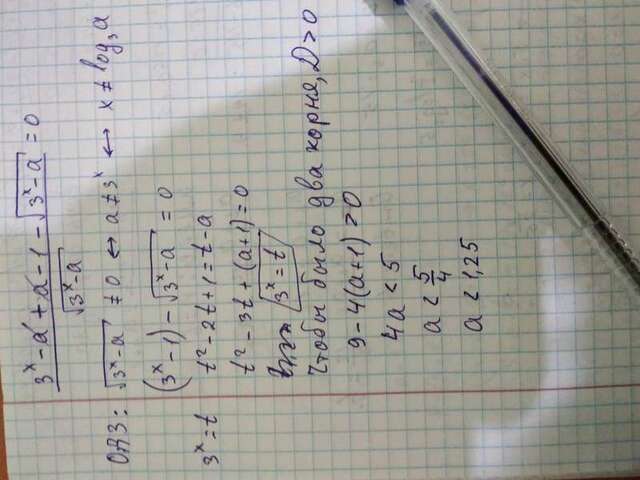 3ˣ-a+a-1-√(3ˣ-a) / √(3ˣ-a) = 0
ОДЗ: √(3ˣ-a) ≠ 0 ↔ a ≠ 3ˣ ↔ x ≠ log₃a
(3ˣ-1) - √(3ˣ-a) = 0
3ˣ=t t²-2t+1=t-a
t²-3t+(a+1)=0
3ˣ=t
Чтобы было два корня, D>0
9-4(a+1)>0
4a<5
a<5/4
a<1,25